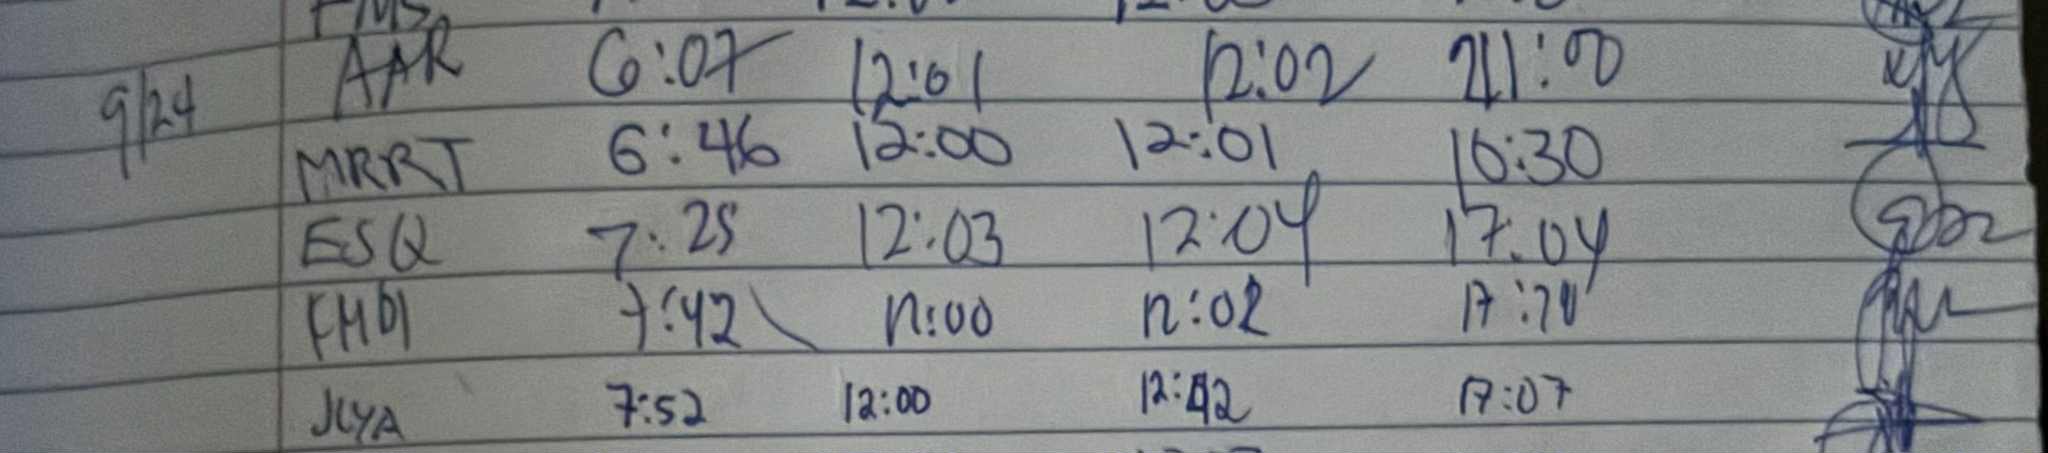 AAR 6:07 12:01 12:02 21:00
9/24
MRRT 6:46 12:00 12:01 16:30
ESQ 7:25 12:03 12:04 17:04
7:42 12:00 12:02
JLYA 7:52 12:00 12:42 17:07